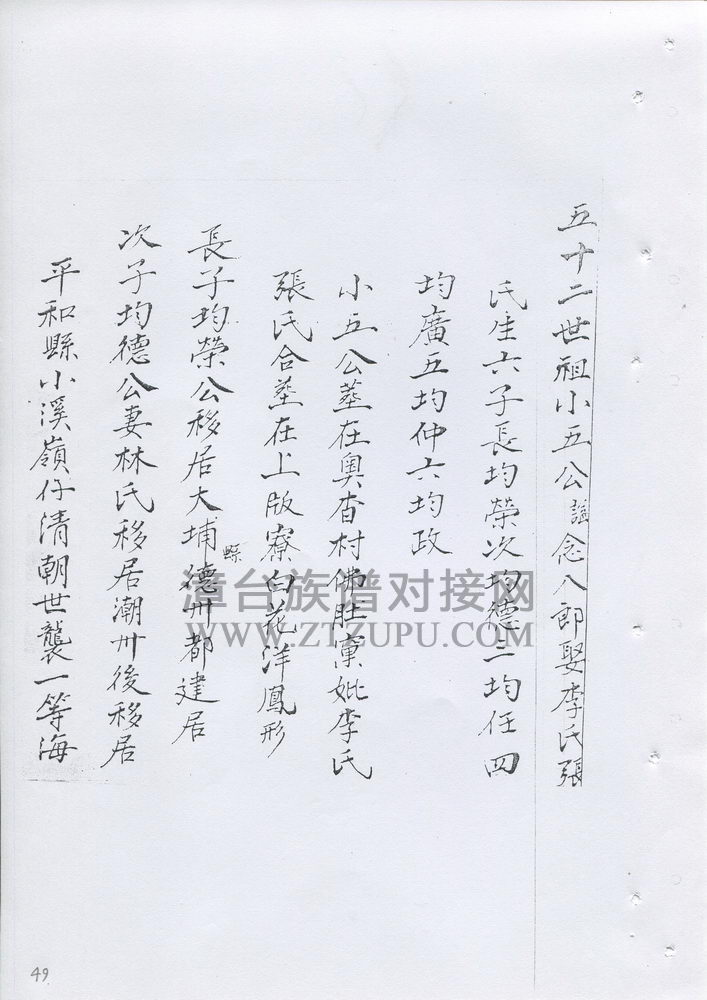 五十二世祖小五公謚念八郎娶李氏張
氏生六子長均榮次均德三均任四
均廣五均仲六均政
小五公墓在奧杳村佛肚窠妣李氏
張氏合墓在上版寮白花洋鳳形
長子均榮公移居大埔縣德卅都建居
次子均德公妻林氏移居潮卅後移居
平和縣小溪嶺仔清朝世襲一等海
漳台族谱对接网
WWW.ZTZUPU.COM
49